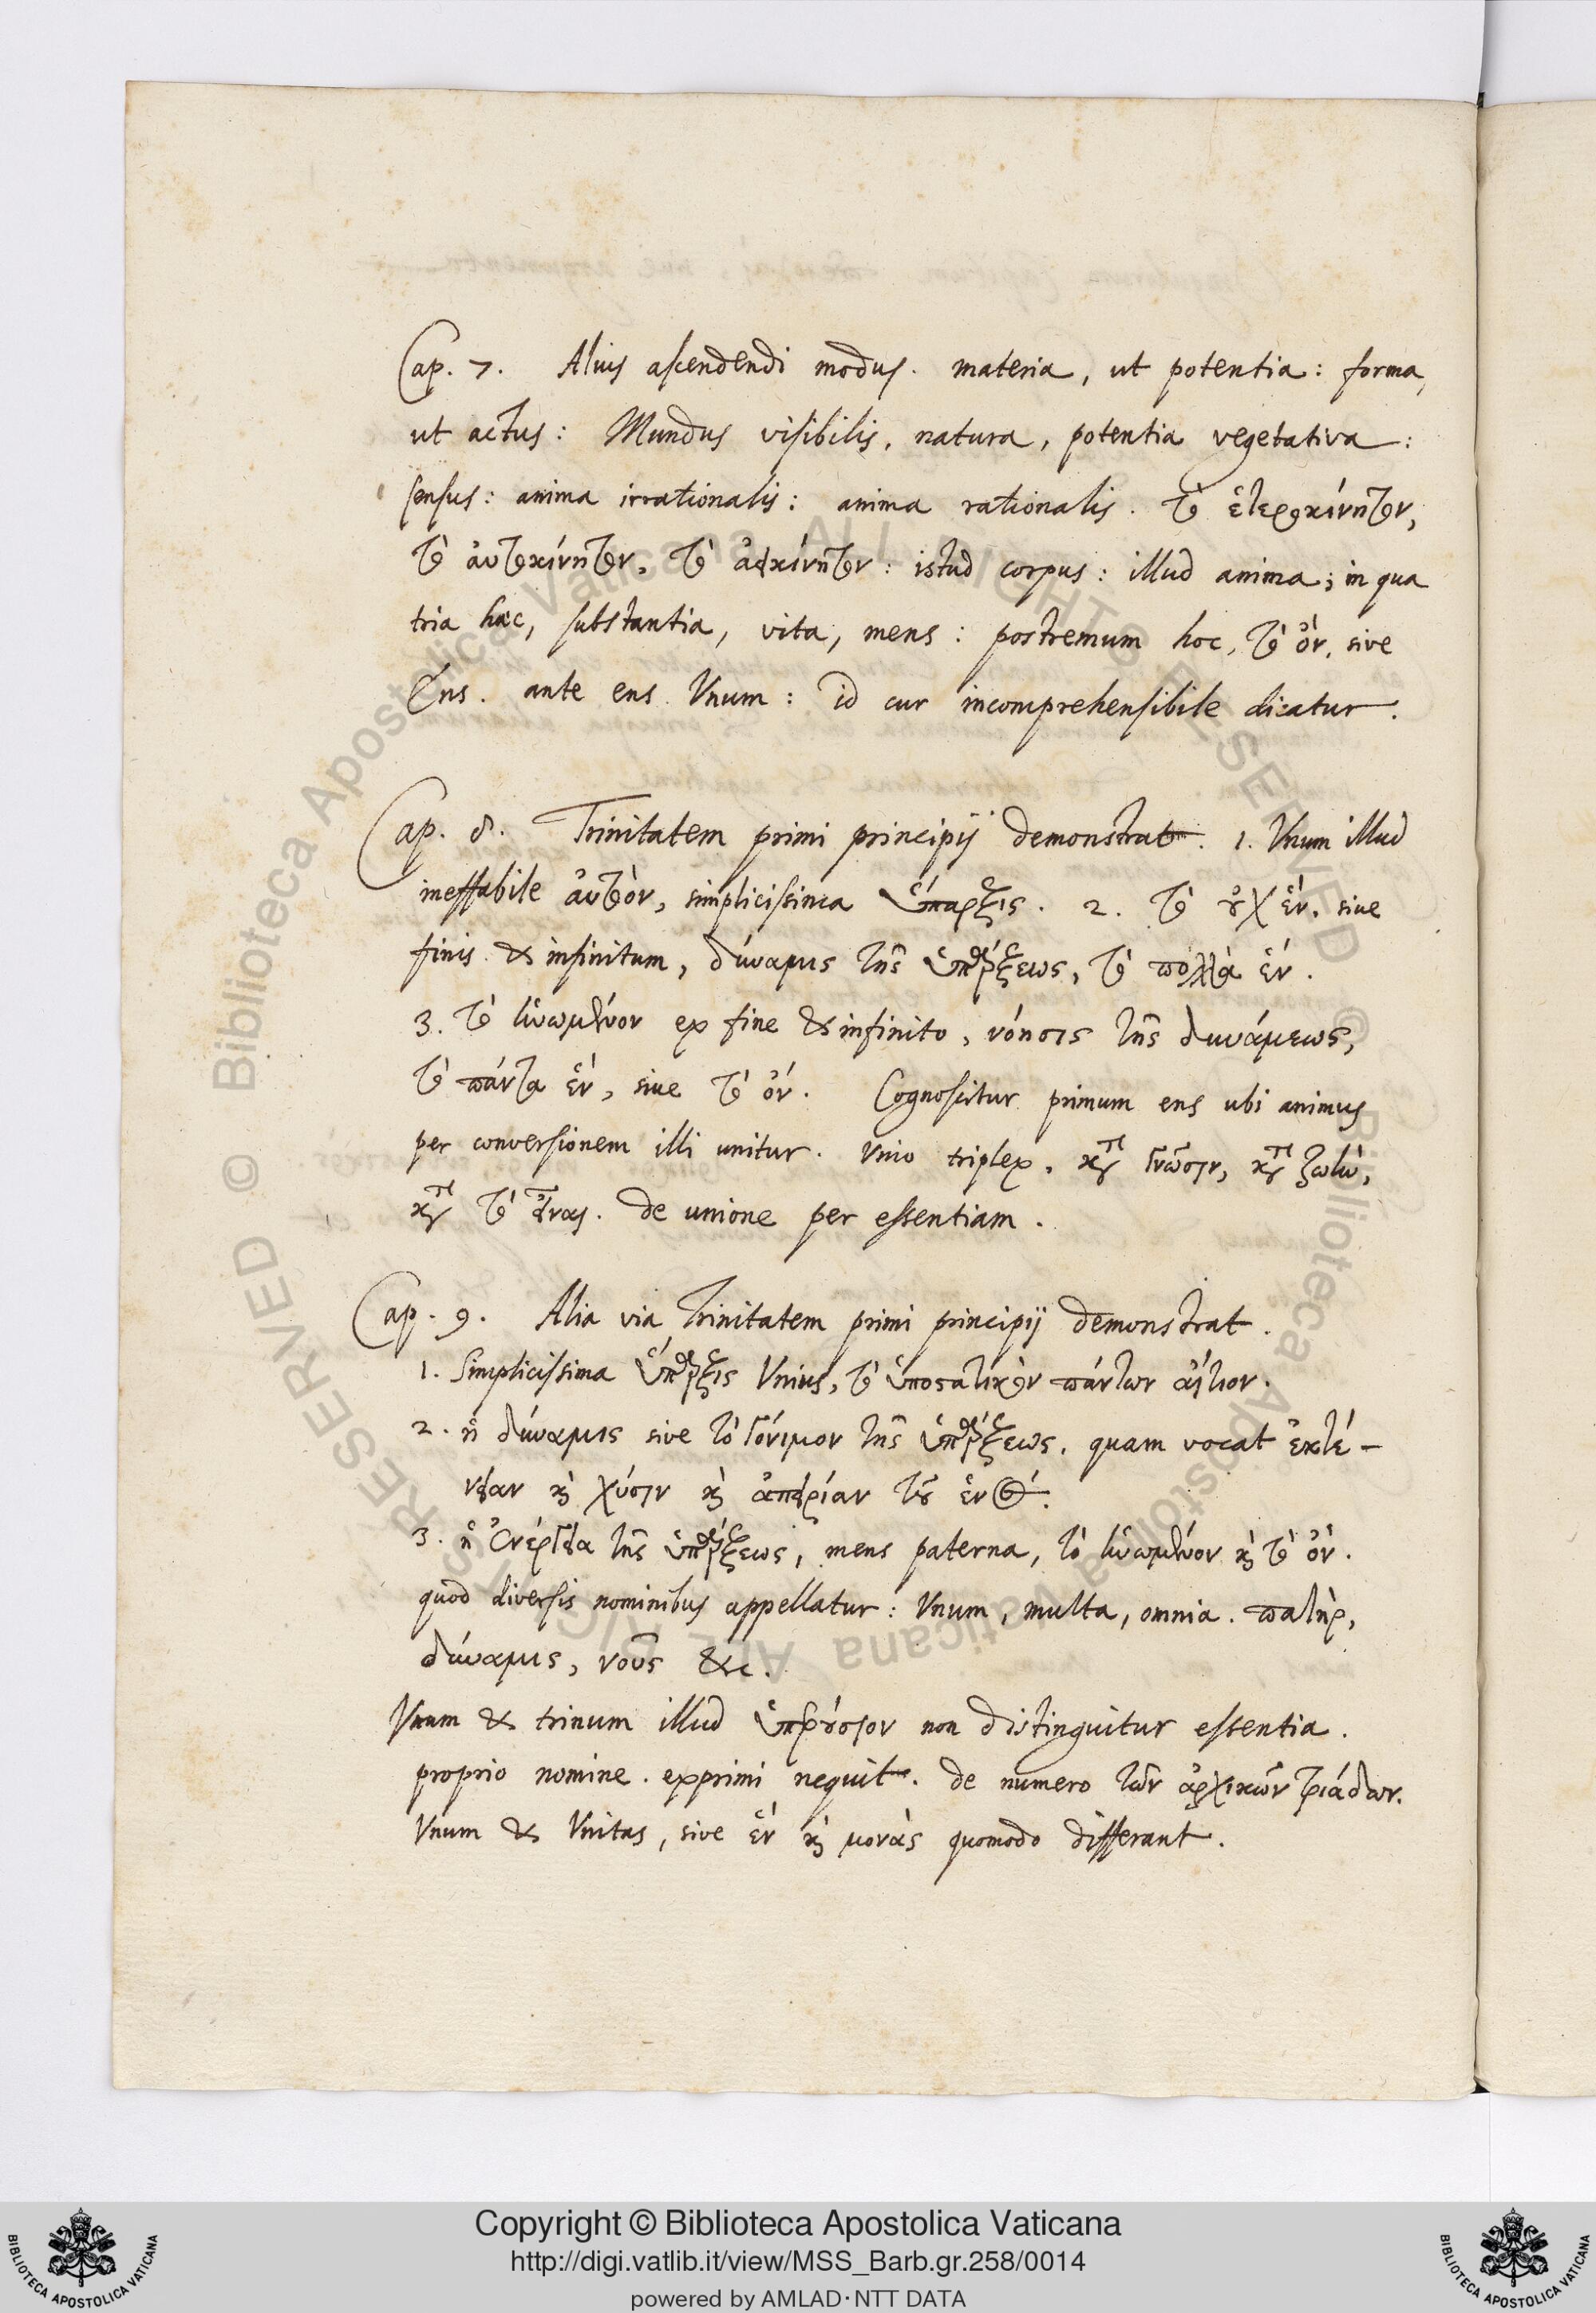 Cap. 7. Alius ascendendi modus. materia, ut potentia: forma,
ut actus: Mundus visibilis, natura, potentia vegetativa:
sensus: anima irrationalis: anima rationalis. τὸ ἑτεροκίνητον,
τὸ αὐτοκίνητον, τὸ ἀεικίνητον: istud corpus: illud anima; in qua
tria hæc, substantia, vita, mens: postremum hoc, τὸ ὄν, sive
Ens. ante ens Vnum: id cur incomprehensibile dicatur.
Cap. 8. Trinitatem primi principij demonstrat. 1. Vnum illud
ineffabile αὐτὸν, simplicissima ὕπαρξις. 2. τὸ οὐχ ἓν, sive
finis & infinitum, δύναμις τῆς ὑπάρξεως, τὸ πολλὰ ἕν.
3. τὸ ἡνωμένον ex fine & infinito, νόησις τῆς δυνάμεως,
τὸ πάντα ἕν, sive τὸ ὄν. Cognoscitur primum ens ubi animus
per conversionem illi unitur. Vnio triplex, κατὰ γνῶσιν, κατὰ ζωὴν,
κατὰ τὸ εἶναι. de unione per essentiam.
Cap. 9. Alia via Trinitatem primi principij demonstrat.
1. Simplicissima ὕπαρξις Vnius, τὸ ὑποστατικὸν πάντων αἴτιον.
2. ἡ δύναμις sive τὸ γόνιμον τῆς ὑπάρξεως. quam vocat ἐκτέ-
νειαν καὶ χύσιν καὶ ἀπειρίαν τοῦ ἑνός.
3. ἡ ἐνέργεια τῆς ὑπάρξεως, mens paterna, τὸ ἡνωμένον καὶ τὸ ὄν.
quod diversis nominibus appellatur: Vnum, multa, omnia. πατὴρ,
δύναμις, νοῦς &c.
Vnum & trinum illud ὑπερούσιον non distinguitur essentia.
proprio nomine exprimi nequit. de numero τῶν ἀρχικῶν τριάδων.
Vnum & Vnitas, sive ἓν καὶ μονὰς quomodo differant.
Copyright © Biblioteca Apostolica Vaticana
http://digi.vatlib.it/view/MSS_Barb.gr.258/0014
powered by AMLAD·NTT DATA